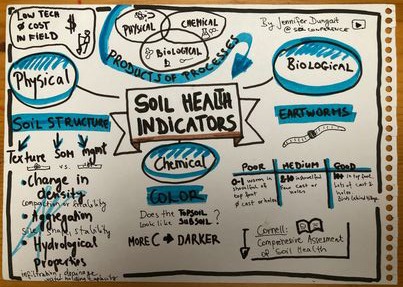 LOW TECH
0 COST
IN FIELD
$
PHYSICAL
CHEMICAL
BIOLOGICAL
PRODUCTS OF PROCESSES
By Jennifer Dungait
@ SOIL CONFERENCE
Physical
SOIL HEALTH
INDICATORS
BIOLOGICAL
SOIL STRUCTURE
Texture
SOM
mgmt
vs.
Change in
density
compaction or
Aggregation
stability
Hydrological
Properties
infiltration, drainage
water holding capacity
Chemical
COLOR
Does the TOPSOIL
look like SUBSOIL?
MORE C → DARKER
EARTHWORMS
POOR
MEDIUM
GOOD
0-1 worm in
top foot
cast or holes
few cast or
holes
10+ in top foot
Lots of cast &
holes
birds behind
Cornell:
Comprehensive Assessment
of Soil Health